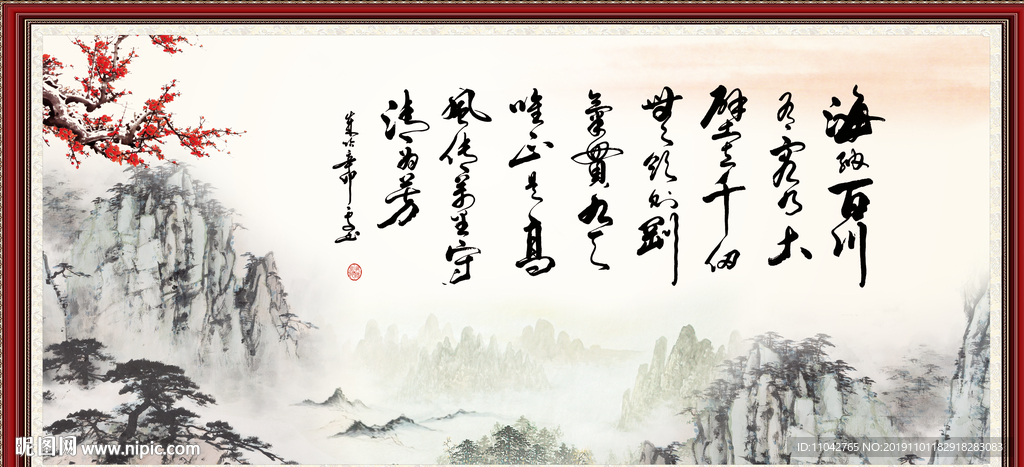 海納百川
有容乃大
壁立千仞
無欲則剛
氣貫九天
唯正是高
風傳萬里守
清為芳
昵图网 www.nipic.com
ID:11042765 NO:20191101182918283083